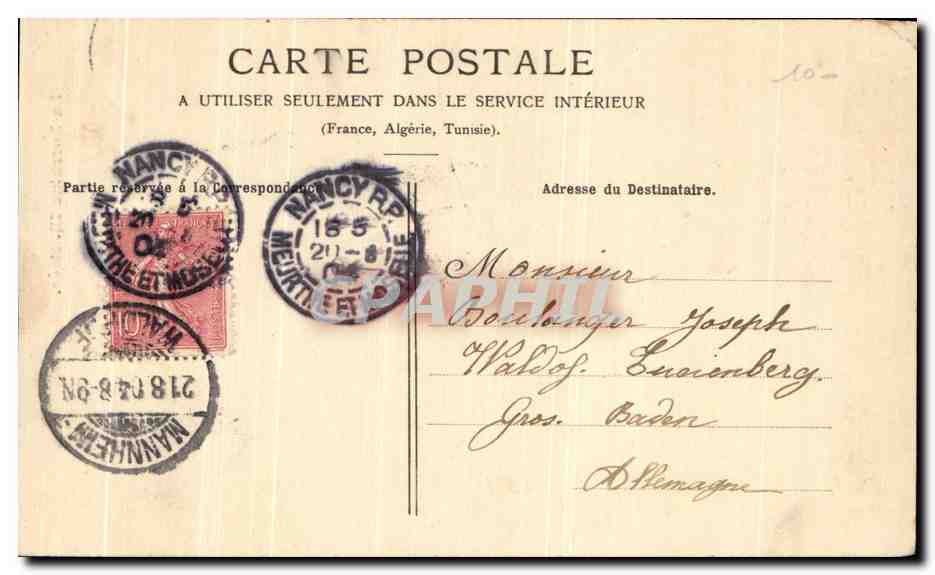 CARTE POSTALE
10-
A UTILISER SEULEMENT DANS LE SERVICE INTÉRIEUR
(France, Algérie, Tunisie).
Partie réservée á la Correspondance
Adresse du Destinataire.
NANCY R.P.
20 8
04
MEURTHE ET MOSELLE
NANCY R.P.
18 5
20 - 8
04
MEURTHE ET MOSELLE
10
MANNHEIM
21 8 04 8-9N
WALDHOF
CPAPHIL
Monsieur
Boulanger Joseph
Waldof. Lucienberg.
Gros. Baden
Allemagne